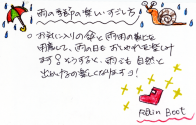 雨の季節の楽しい すごし方
○ お気に入りの傘と雨用の靴を
用意して、雨の日もおしゃれを楽しけ
ます♀ そうすると、雨でも自然と
出かけるのが楽しくなりますョ!
Rain Boot